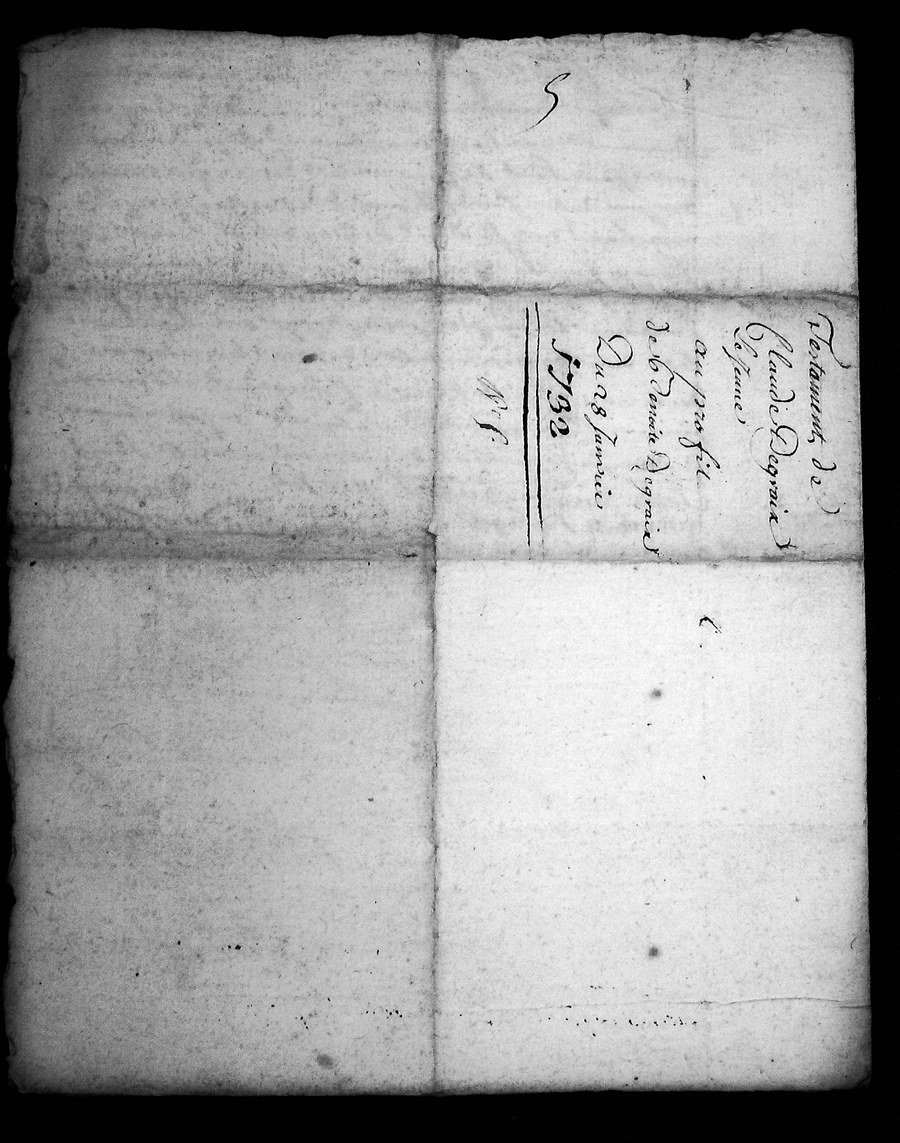 5
Testament, de
Claude Degraix
Le Jeune,
au profil
de Benoite Degraix
Du 28 Janvie
1732
N° 5